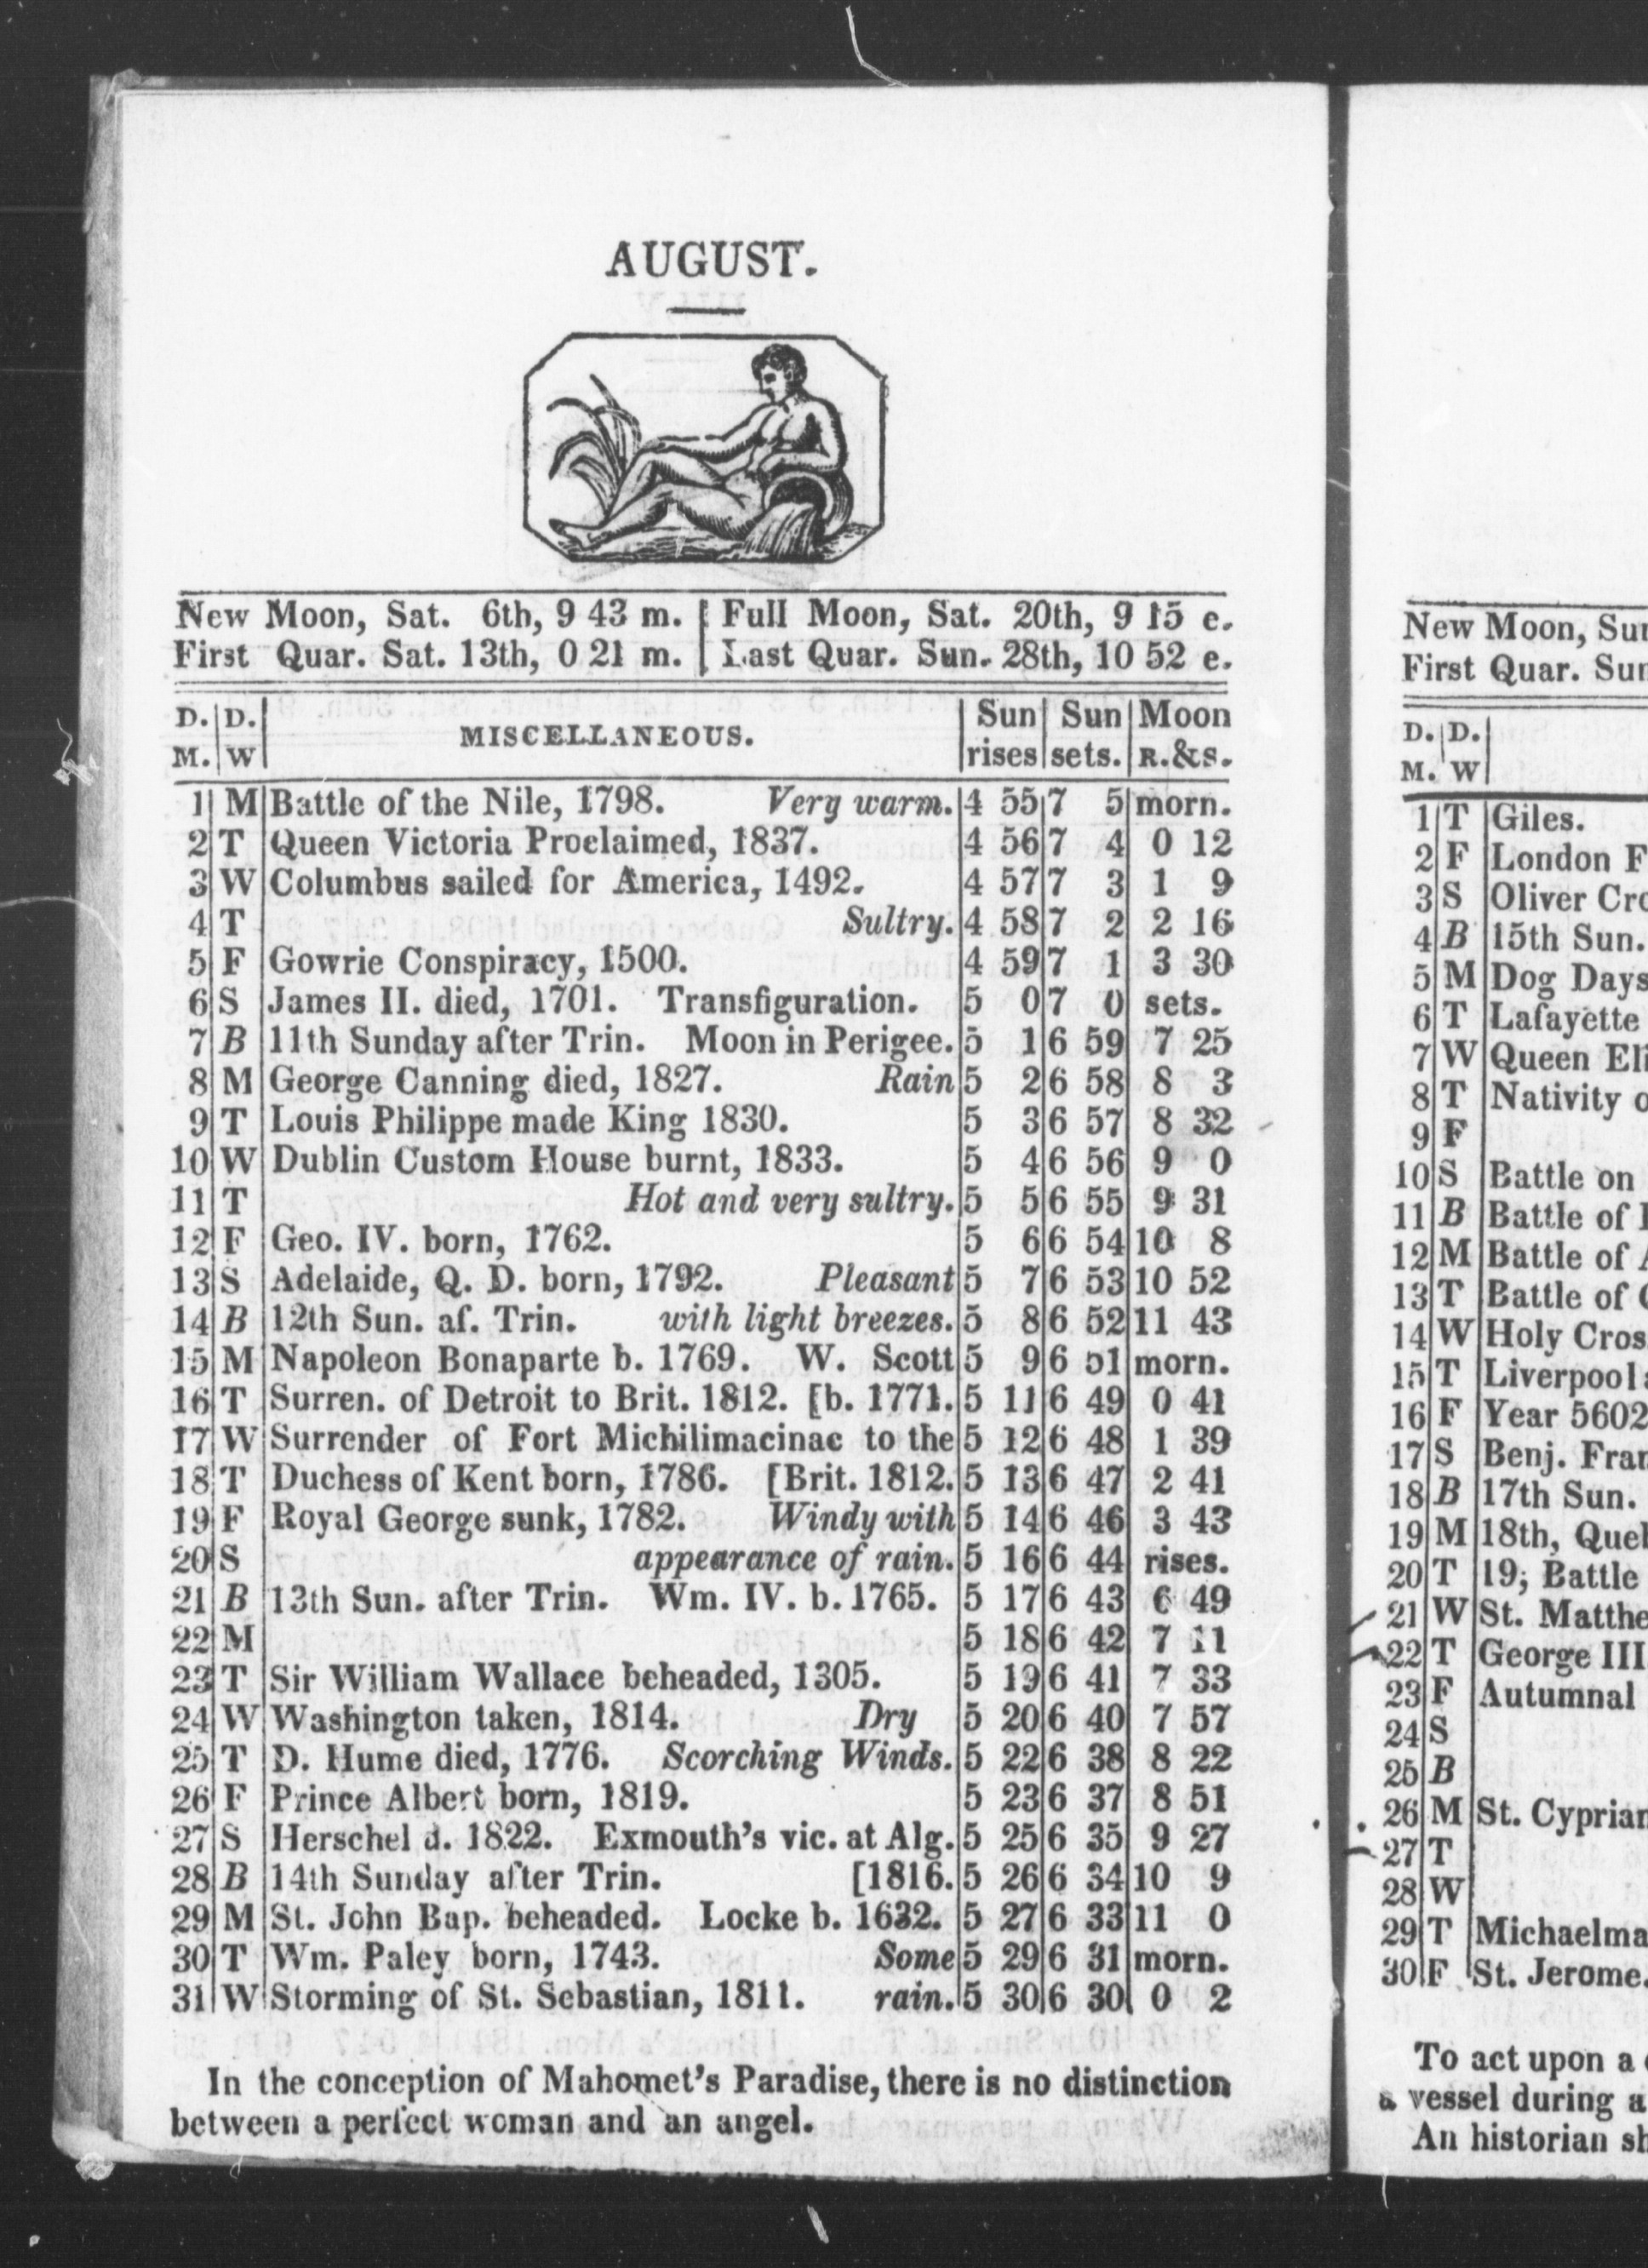 AUGUST.
New Moon, Sat. 6th, 9 43 m. | Full Moon, Sat. 20th, 9 15 e.
First Quar. Sat. 13th, 0 21 m. | Last Quar. Sun. 28th, 10 52 e.
D. M. | D. W | MISCELLANEOUS. | Sun rises | Sun sets. | Moon R.&s.
1 M Battle of the Nile, 1798. Very warm. 4 55 7 5 morn.
2 T Queen Victoria Proclaimed, 1837. 4 56 7 4 0 12
3 W Columbus sailed for America, 1492. 4 57 7 3 1 9
4 T Sultry. 4 58 7 2 2 16
5 F Gowrie Conspiracy, 1500. 4 59 7 1 3 30
6 S James II. died, 1701. Transfiguration. 5 0 7 0 sets.
7 B 11th Sunday after Trin. Moon in Perigee. 5 1 6 59 7 25
8 M George Canning died, 1827. Rain 5 2 6 58 8 3
9 T Louis Philippe made King 1830. 5 3 6 57 8 32
10 W Dublin Custom House burnt, 1833. 5 4 6 56 9 0
11 T Hot and very sultry. 5 5 6 55 9 31
12 F Geo. IV. born, 1762. 5 6 6 54 10 8
13 S Adelaide, Q. D. born, 1792. Pleasant 5 7 6 53 10 52
14 B 12th Sun. af. Trin. with light breezes. 5 8 6 52 11 43
15 M Napoleon Bonaparte b. 1769. W. Scott 5 9 6 51 morn.
16 T Surren. of Detroit to Brit. 1812. [b. 1771. 5 11 6 49 0 41
17 W Surrender of Fort Michilimacinac to the 5 12 6 48 1 39
18 T Duchess of Kent born, 1786. [Brit. 1812. 5 13 6 47 2 41
19 F Royal George sunk, 1782. Windy with 5 14 6 46 3 43
20 S appearance of rain. 5 16 6 44 rises.
21 B 13th Sun. after Trin. Wm. IV. b. 1765. 5 17 6 43 6 49
22 M 5 18 6 42 7 11
23 T Sir William Wallace beheaded, 1305. 5 19 6 41 7 33
24 W Washington taken, 1814. Dry 5 20 6 40 7 57
25 T D. Hume died, 1776. Scorching Winds. 5 22 6 38 8 22
26 F Prince Albert born, 1819. 5 23 6 37 8 51
27 S Herschel d. 1822. Exmouth's vic. at Alg. 5 25 6 35 9 27
28 B 14th Sunday after Trin. [1816. 5 26 6 34 10 9
29 M St. John Bap. beheaded. Locke b. 1632. 5 27 6 33 11 0
30 T Wm. Paley born, 1743. Some 5 29 6 31 morn.
31 W Storming of St. Sebastian, 1811. rain. 5 30 6 30 0 2
In the conception of Mahomet's Paradise, there is no distinction
between a perfect woman and an angel.
New Moon, Sun
First Quar. Sun
D. M. | D. W
1 T Giles.
2 F London F
3 S Oliver Cro
4 B 15th Sun.
5 M Dog Days
6 T Lafayette
7 W Queen Eli
8 T Nativity o
9 F
10 S Battle on
11 B Battle of
12 M Battle of
13 T Battle of
14 W Holy Cros
15 T Liverpool
16 F Year 5602
17 S Benj. Fran
18 B 17th Sun.
19 M 18th, Que
20 T 19; Battle
21 W St. Matthe
22 T George III
23 F Autumnal
24 S
25 B
26 M St. Cyprian
27 T
28 W
29 T Michaelma
30 F St. Jerome.
To act upon a
a vessel during a
An historian sh